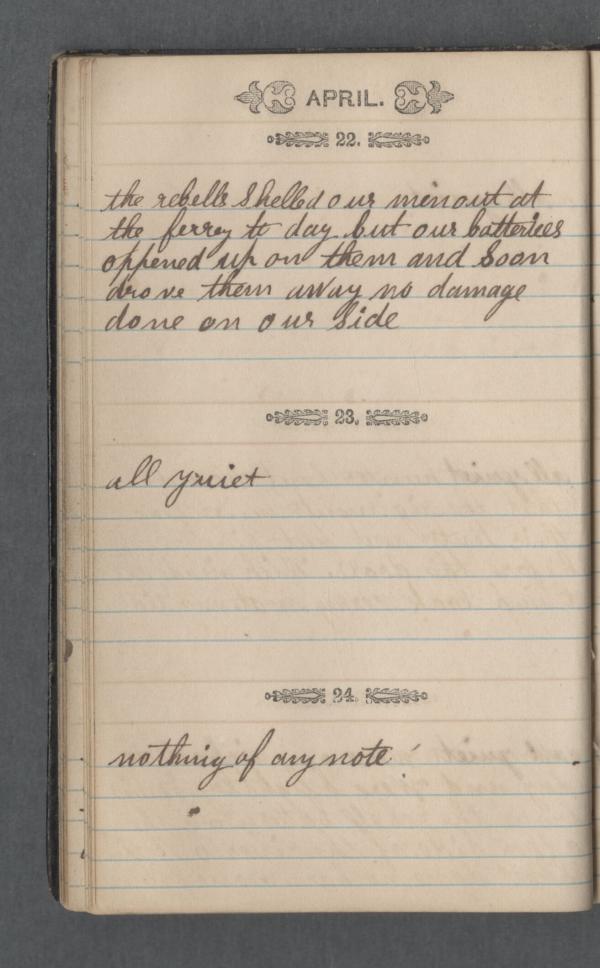 APRIL.
22.
the rebells Shelled our men out at
the ferrey to day but our batteriees
oppened up on them and Soon
drove them away no damage
done on our Side
23.
all quiet
24.
nothing of any note